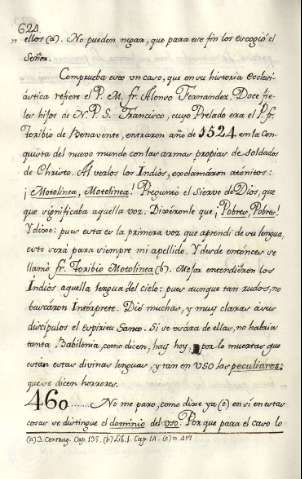 624
ellos (a). No pueden negar, que para ese fin los escogió el
Señor.
Comprueba esto un caso, que en su historia Eclesi-
ástica refiere el P. M. fr. Alonso Fernandez. Doce fie-
les hijos de N. P. S. Francisco, cuyo Prelado era el P. fr.
Toribio de Benavente, entraron año de 1524 en la con-
quista del nuevo mundo con las armas propias de soldados
de Christo. Al verlos los Indios, exclamáron atónitos:
¡Motolinea, Motolinea! Preguntó el Siervo de Dios, que
que significaba aquella voz. Dixéronle que ¡Pobres, Pobres!
Y dixo: pues esta es la primera voz que aprendí de su lengua,
este será para siempre mi apellido. Y desde entónces se
llamó fr. Toribio Motolinea (b). Mejor entendiéron los
Indios aquella lengua del cielo: pues aunque tan rudos, no
buscáron Intérprete. Dió muchas, y muy claras á sus
discipulos el espiritu Santo. Si se usára de ellas, no habria
tanta Babilonia, como dicen, hay hoy, por lo muertas que
estan estas divinas lenguas, y tan en uso las peculiares:
que se dicen horrores.
460......No me paro, como dixe ya (c) en si en estas
cosas se distingue el dominio del uso. Porque para el caso lo
(a) 2. Cap. 135. (b) Lib. 1. Cap. 14. (c) n.